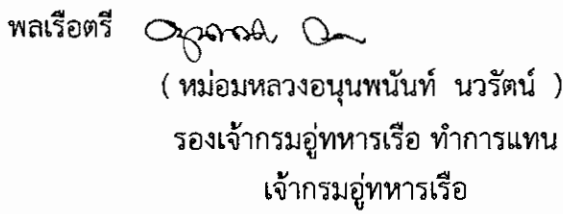 พลเรือตรี
( หม่อมหลวงอนุนพนันท์ นวรัตน์ )
รองเจ้ากรมอู่ทหารเรือ ทำการแทน
เจ้ากรมอู่ทหารเรือ